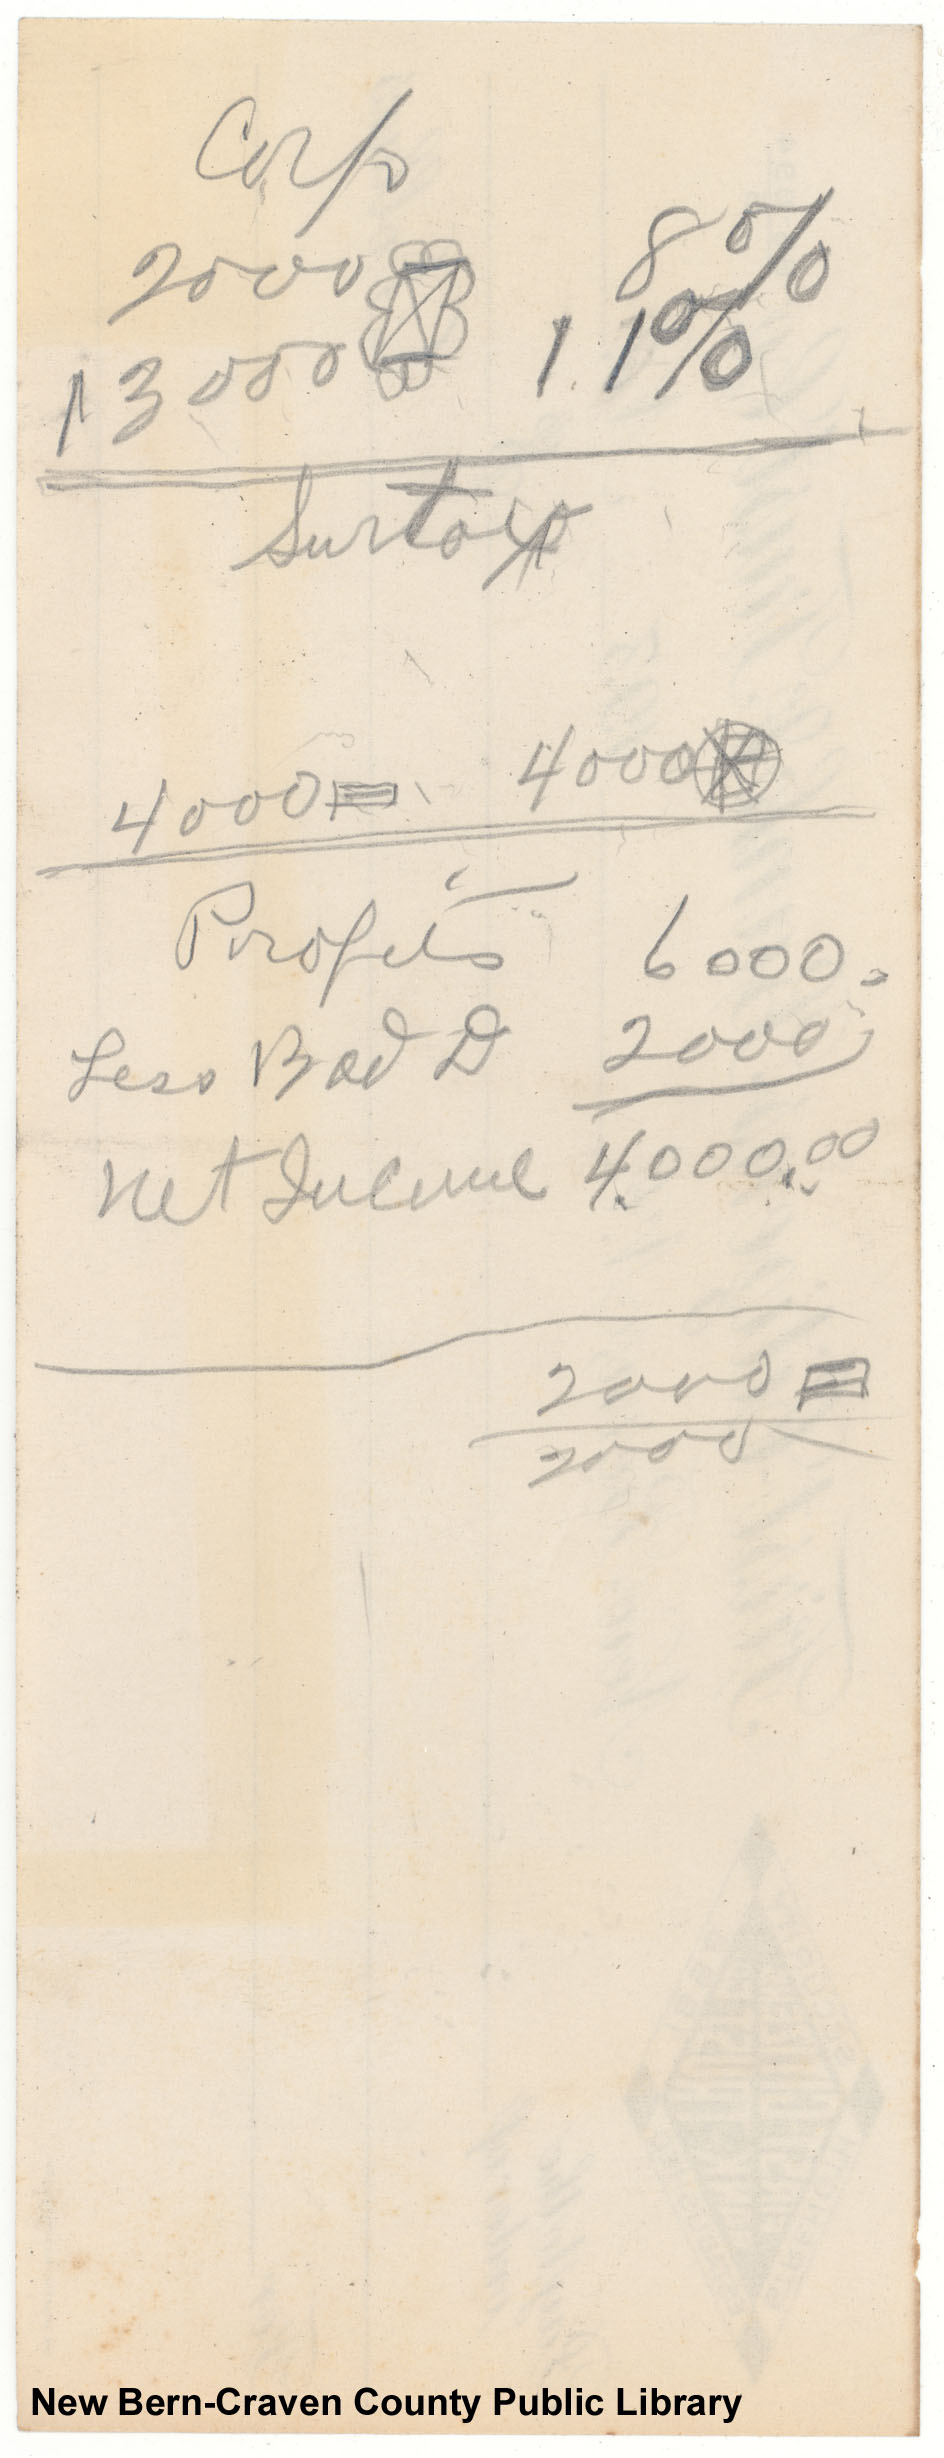 Corp
2000 8%
13000 11%
Surtax
4000= 4000
Profits 6000.
Less Bad D 2000
Net Income 4,000.00
2000=
2000
New Bern-Craven County Public Library